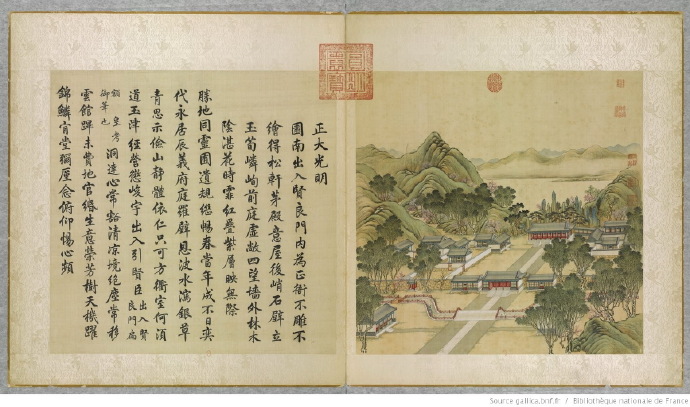 正大光明
園南出入賢良門內為正衙不雕不
繪得松軒茅殿意屋後峭石壁立
玉筍嶙峋前庭虛敞四望墻外林木
陰湛花時霏紅疊紫層映無際
勝地同靈囿遺規繼暢春當年成不日奕
代永居辰義府庭羅壁恩波水瀉銀草
青思示儉山靜體依仁只可方衢室何須
道玉津經營懋峻宇出入引賢臣出入賢良門
額皇考御筆也洞達心常豁清涼境絕塵常移
雲館蹕未費地官緡生意榮芳樹天機躍
錦鱗肯堂彌厪念俯仰惕心頻
Source gallica.bnf.fr / Bibliothèque nationale de France